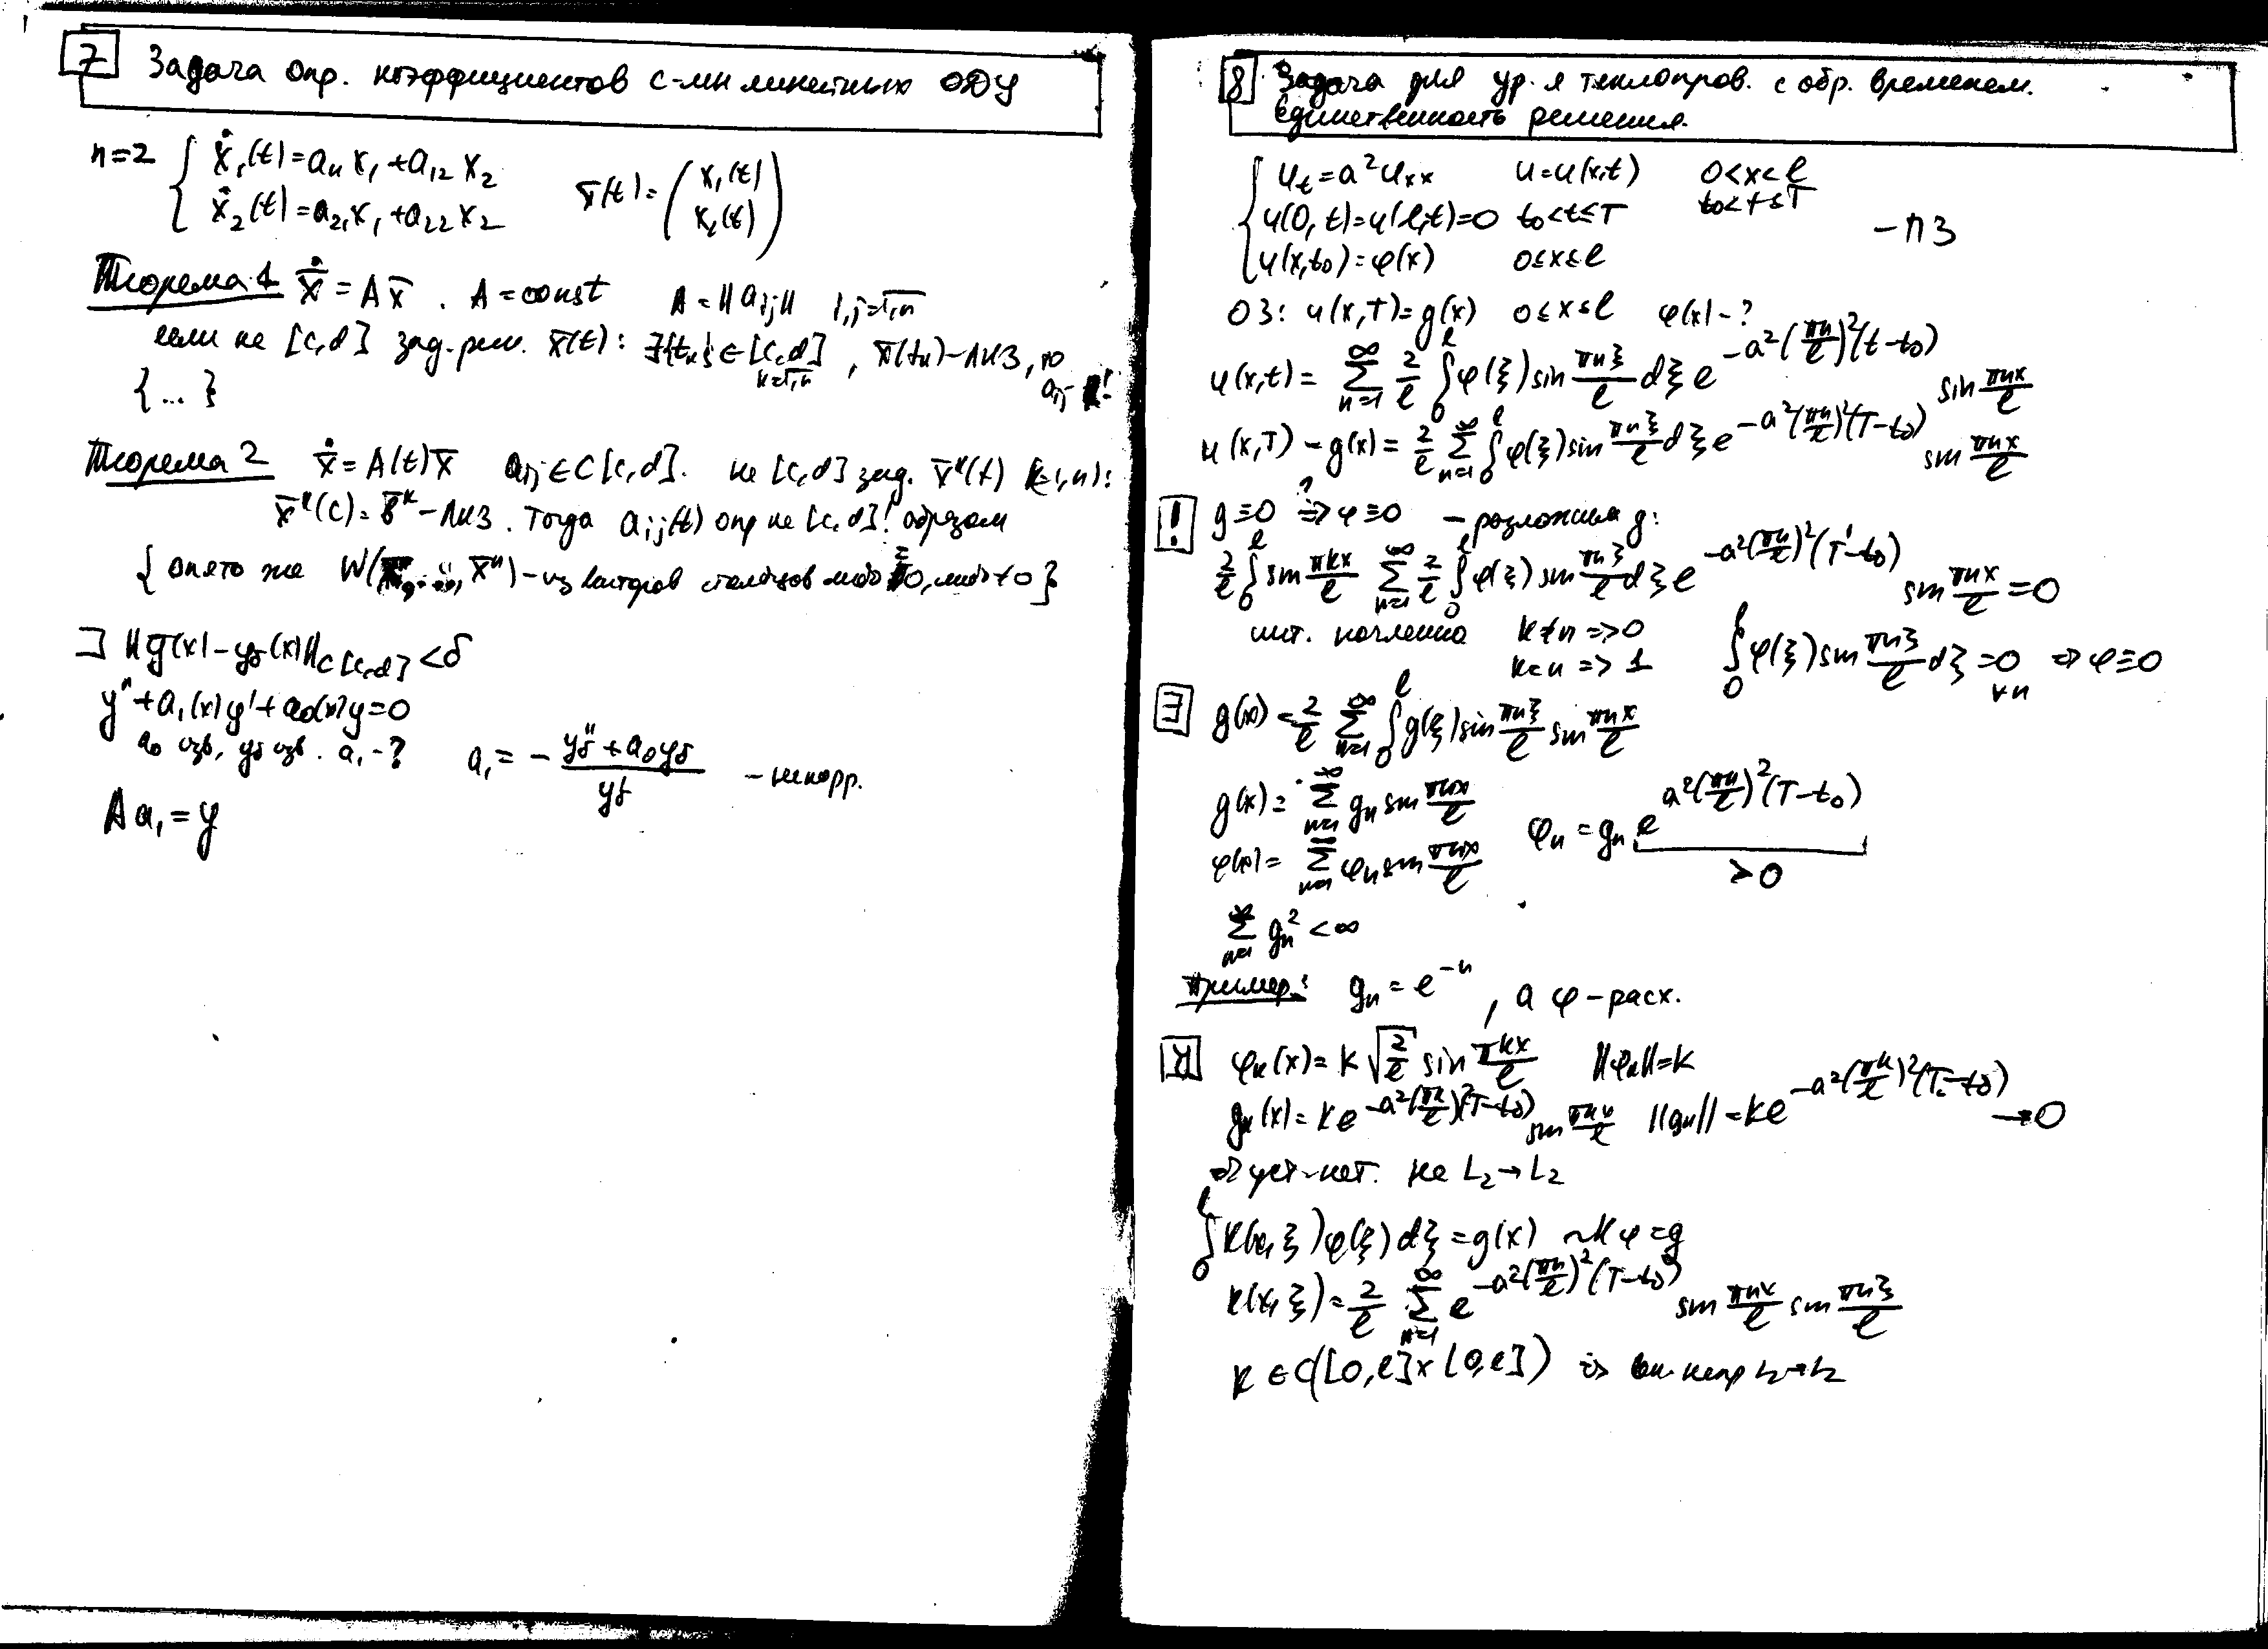 7 Задача опр. коэффициентов с-мы линейных ОДУ
n=2 { ẋ₁(t)=a₁₁x₁+a₁₂x₂
ẋ₂(t)=a₂₁x₁+a₂₂x₂ x̄(t)=(x₁(t) x₂(t))
Теорема 1 ẋ̄=Ax̄. A=const A=‖aᵢⱼ‖ i,j=1,n
если на [c,d] зад. реш. x̄(t): ∃{tₖ}∈[c,d] k=1,n, x̄(tₖ)-ЛНЗ, то aᵢⱼ - !
{...}
Теорема 2 ẋ̄=A(t)x̄ aᵢⱼ∈C[c,d]. на [c,d] зад. x̄ᵏ(t) (k=1,n):
x̄ᵏ(c)=b̄ᵏ-ЛНЗ. Тогда aᵢⱼ(t) опр на [c,d] ! образом
{опять же W( , x̄ⁿ)-из векторов столбцов либо ≡0, либо ≠0}
⊐ ‖ȳ(x)-yδ(x)‖C[c,d]<δ
y''+a₁(x)y'+a₀(x)y=0
a₀ изв, yδ изв. a₁-? a₁= - (yδ''+a₀yδ)/yδ' -некорр.
Aa₁=y
8 Задача для ур-я теплопров. с обр. временем.
Единственность решения.
{ uₜ=a²uₓₓ u=u(x,t) 0<x<l t₀<t≤T
u(0,t)=u(l,t)=0 t₀<t≤T -ПЗ
u(x,t₀)=φ(x) 0≤x≤l
ОЗ: u(x,T)=g(x) 0≤x≤l φ(x)-?
u(x,t)= ∑ₙ₌₁^∞ 2/l ∫₀^l φ(ξ)sin(πnξ/l)dξ e^(-a²(πn/l)²(t-t₀)) sin(πnx/l)
u(x,T)-g(x)= 2/l ∑ₙ₌₁^∞ ∫₀^l φ(ξ)sin(πnξ/l)dξ e^(-a²(πn/l)²(T-t₀)) sin(πnx/l)
! g≡0 ?⇒ φ≡0 -разложим g:
2/l ∫₀^l sin(πkx/l) ∑ₙ₌₁^∞ 2/l ∫₀^l φ(ξ)sin(πnξ/l)dξ e^(-a²(πn/l)²(T-t₀)) sin(πnx/l)=0
инт. почленно k≠n =>0
k=n => 1 ∫₀^l φ(ξ)sin(πnξ/l)dξ=0 ∀n ⇒ φ≡0
∃ g(x)=2/l ∑ₙ₌₁^∞ ∫₀^l g(ξ)sin(πnξ/l) sin(πnx/l)
g(x)= ∑ₙ₌₁^∞ gₙ sin(πnx/l)
φ(x)= ∑ₙ₌₁^∞ φₙ sin(πnx/l) φₙ=gₙ e^(a²(πn/l)²(T-t₀)) >0
∑ₙ₌₁^∞ gₙ²<∞
Пример: gₙ=e⁻ⁿ, а φ-расх.
У φₖ(x)=k√(2/l) sin(πkx/l) ‖φₖ‖=k
gₖ(x)=k e^(-a²(πk/l)²(T-t₀)) sin(πkx/l) ‖gₖ‖=k e^(-a²(πk/l)²(T-t₀)) →0
⇒ уст-нет. на L₂→L₂
∫₀^l K(x,ξ)φ(ξ)dξ=g(x) ~Kφ=g
K(x,ξ)=2/l ∑ₙ₌₁^∞ e^(-a²(πn/l)²(T-t₀)) sin(πnx/l) sin(πnξ/l)
K∈C([0,l]×[0,l]) непр L₂→L₂